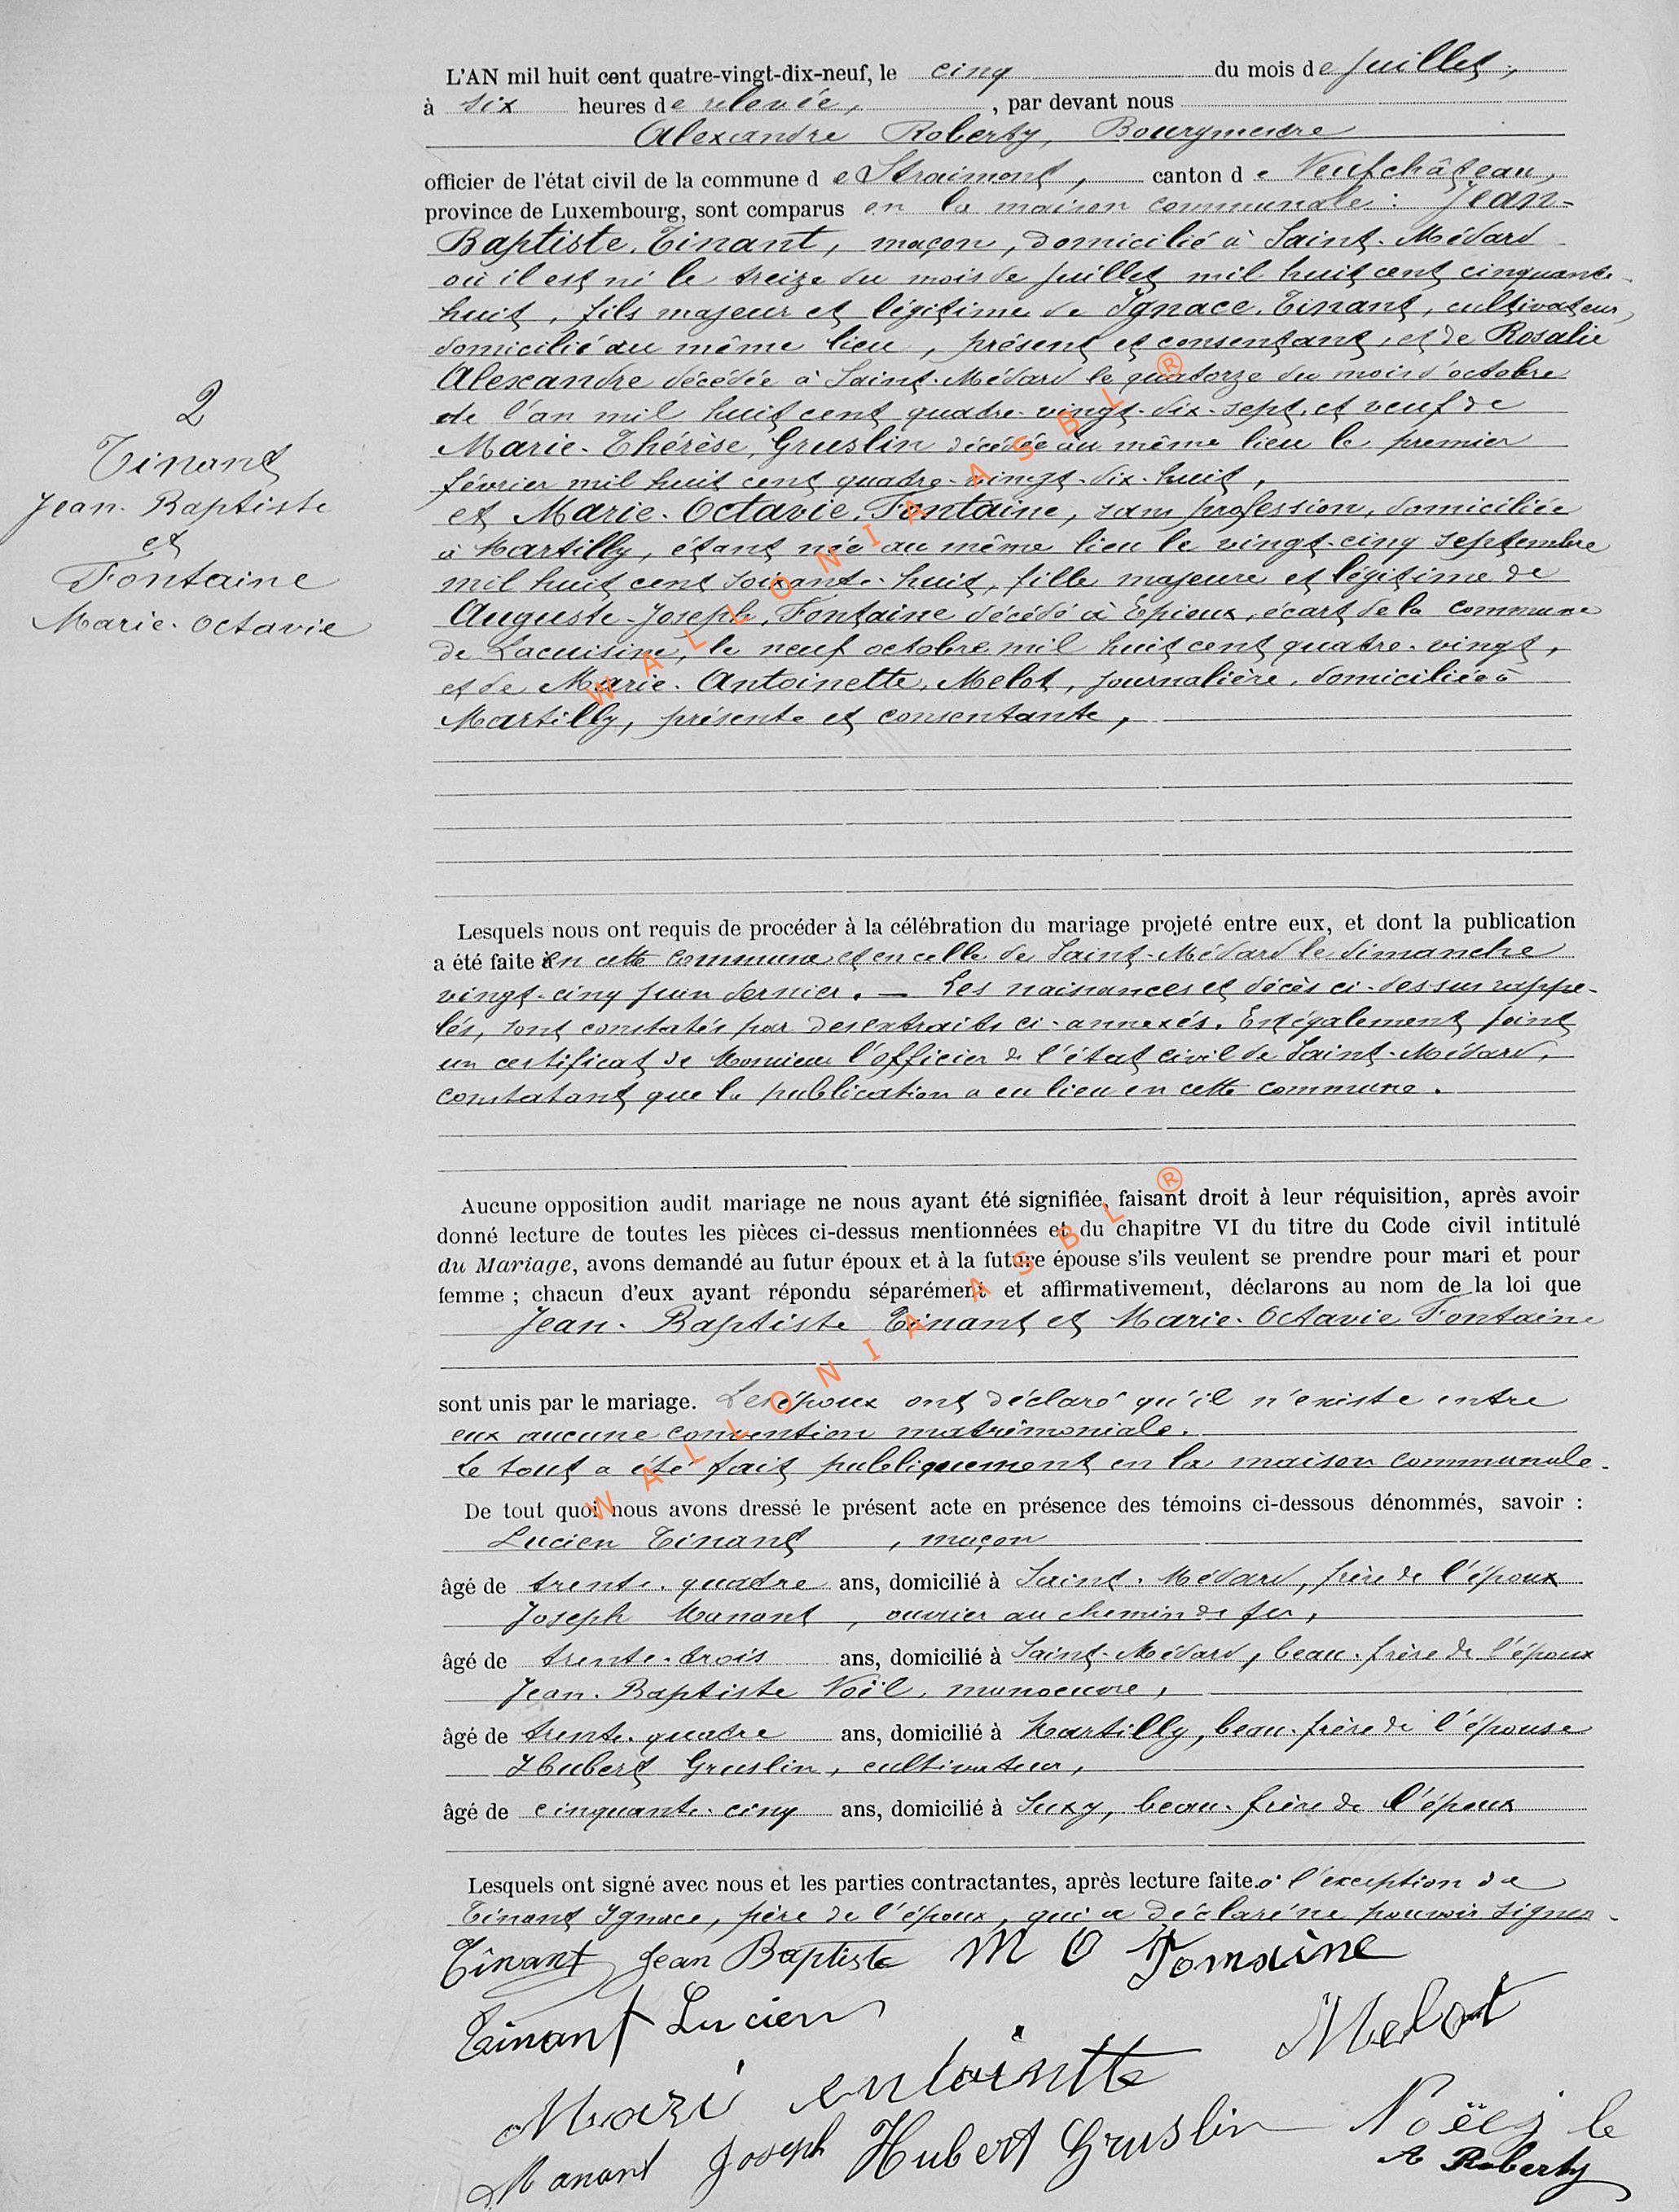 L'AN mil huit cent quatre-vingt-dix-neuf, le cinq du mois de Juillet,
à six heures de relevée, , par devant nous
Alexandre Roberty, Bourgmestre
officier de l'état civil de la commune de Straimont, canton de Neufchâteau,
province de Luxembourg, sont comparus en la maison communale : Jean-
Baptiste Tinant, maçon, domicilié à Saint-Médard
où il est né le treize du mois de Juillet mil huit cent cinquante-
huit, fils majeur et légitime de Ignace Tinant, cultivateur,
domicilié au même lieu, présent et consentant, et de Rosalie
Alexandre décédée à Saint-Médard le quatorze du mois d'octobre
de l'an mil huit cent quatre-vingt-dix-sept, et veuf de
Marie-Thérèse, Gruslin décédée au même lieu le premier
février mil huit cent quatre-vingt-dix-huit,
et Marie-Octavie, Fontaine, sans profession, domiciliée
à Martilly, étant née au même lieu le vingt-cinq septembre
mil huit cent soixante-huit, fille majeure et légitime de
Auguste-Joseph, Fontaine décédé à Epioux, écart de la commune
de Lacuisine, le neuf octobre mil huit cent quatre-vingt,
et de Marie-Antoinette, Melot, journalière, domiciliée à
Martilly, présente et consentante,
2
Tinant
Jean-Baptiste
et
Fontaine
Marie-Octavie
Lesquels nous ont requis de procéder à la célébration du mariage projeté entre eux, et dont la publication
a été faite à en cette commune et en celle de Saint-Médard le dimanche
vingt-cinq juin dernier. — Les naissances et décès ci-dessus rappe-
lés, sont constatés par des extraits ci-annexés. Est également joint
un certificat de Monsieur l'officier de l'état civil de Saint-Médard,
constatant que la publication a eu lieu en cette commune.
Aucune opposition audit mariage ne nous ayant été signifiée, faisant droit à leur réquisition, après avoir
donné lecture de toutes les pièces ci-dessus mentionnées et du chapitre VI du titre du Code civil intitulé
du Mariage, avons demandé au futur époux et à la future épouse s'ils veulent se prendre pour mari et pour
femme ; chacun d'eux ayant répondu séparément et affirmativement, déclarons au nom de la loi que
Jean-Baptiste Tinant et Marie-Octavie Fontaine
sont unis par le mariage. Les époux ont déclaré qu'il n'existe entre
eux aucune convention matrimoniale.
Le tout a été fait publiquement en la maison communale.
De tout quoi nous avons dressé le présent acte en présence des témoins ci-dessous dénommés, savoir :
Lucien Tinant , maçon
âgé de trente-quatre ans, domicilié à Saint-Médard, frère de l'époux
Joseph Manant, ouvrier au chemin de fer,
âgé de trente-trois ans, domicilié à Saint-Médard, beau-frère de l'époux
Jean-Baptiste Noël, manoeuvre,
âgé de trente-quatre ans, domicilié à Martilly, beau-frère de l'épouse
Hubert Gruslin, cultivateur,
âgé de cinquante-cinq ans, domicilié à Suxy, beau-frère de l'époux
Lesquels ont signé avec nous et les parties contractantes, après lecture faite. à l'exception de
Tinant Ignace, père de l'époux, qui a déclaré ne pouvoir signer.
Tinant Jean Baptiste M O Fontaine
Tinant Lucien
Melot
Mari entoinette
Manant Joseph Hubert Gruslin Noël
A Roberty
WALLONIA ASBL ®
WALLONIA ASBL ®